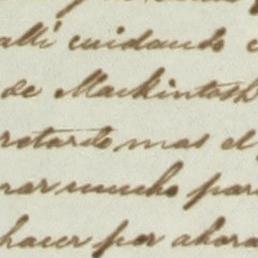 alli cuidando
de Mackintosh
retardo mas el
mucho par
hacer por ahora